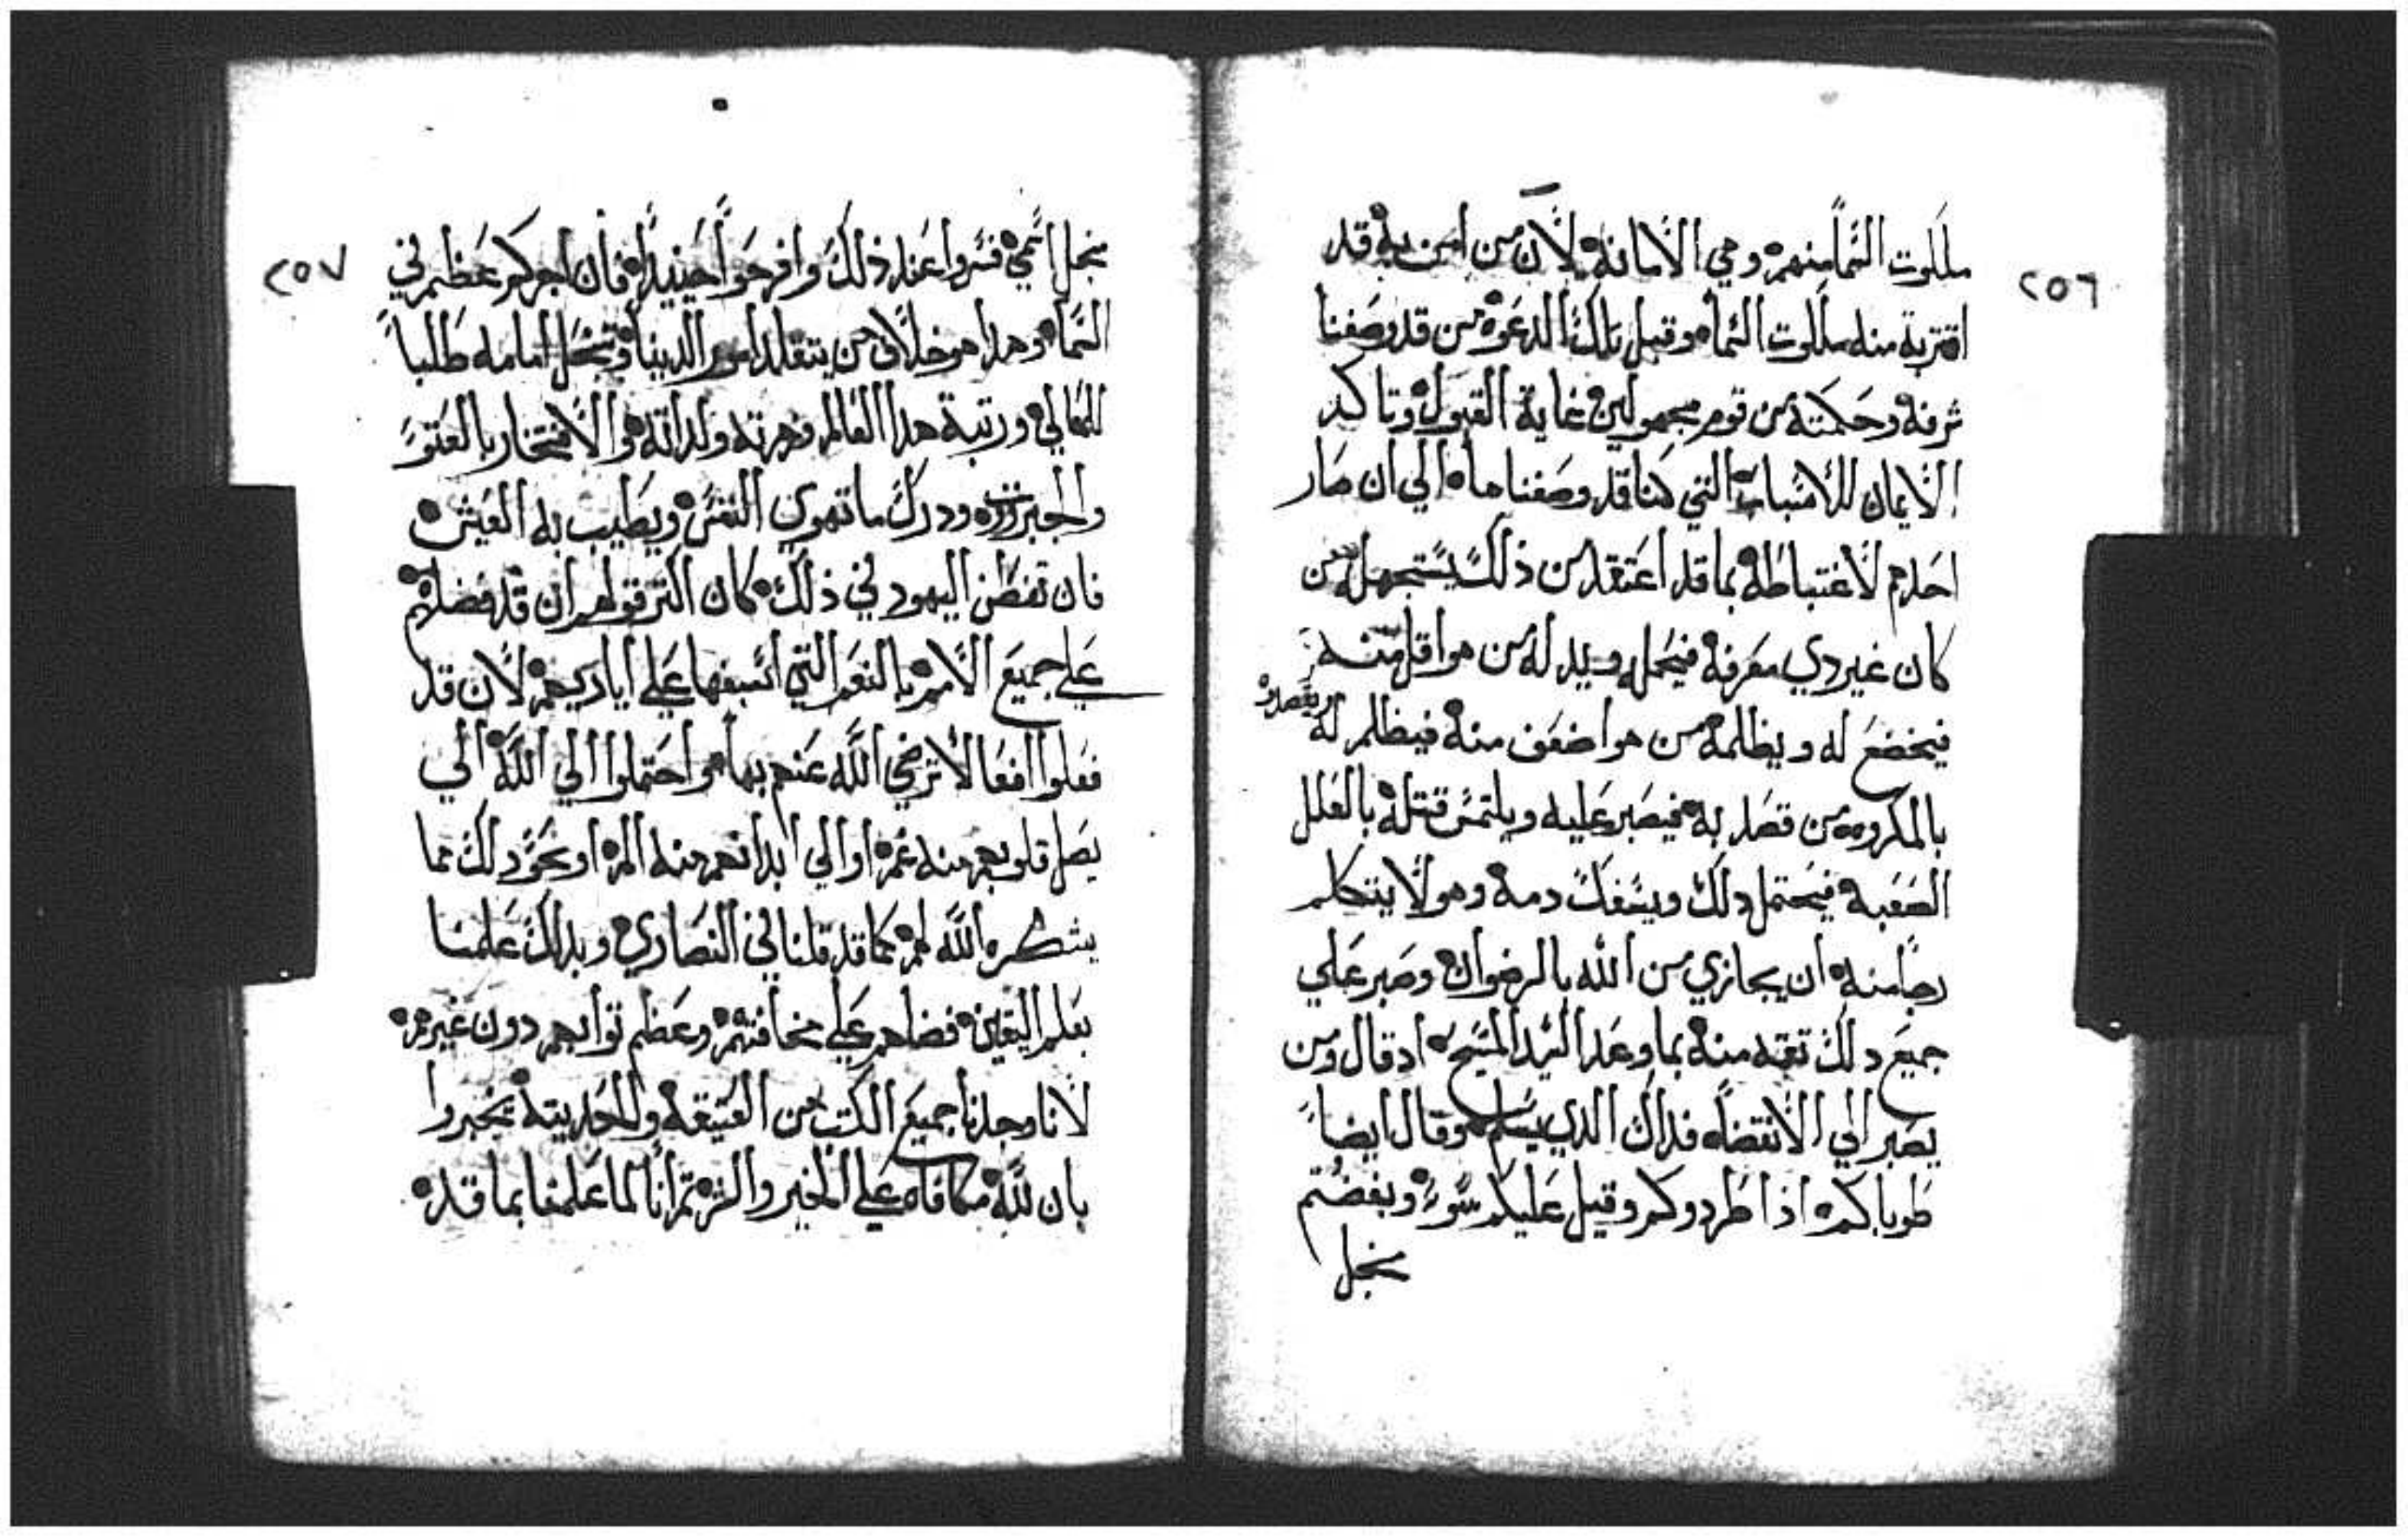 ٢٥٦
ملكوت السما منهم وهي الامانه لان من امن به قد
اقتربة منه ملكوت السماء وقبل تلك الدعوة من قد وصفنا
شرفه وحكمته من قوم مجهولين غاية القبول وتاكد
الايمان للاسباب التي كنا قد وصفناها الي ان صار
احدهم لاغتباطه بما قد اعتقد من ذلك يستجهله من
كان غير دي معرفة فيحمله ويدله من هو اقل منه
فيخضع له ويظلمه من هو اضعف منه فيظلم له ويقصده
بالمكروه من قصد به فيصبر عليه ويلتمس قتله بالعلل
الصعبه فيحتمل دلك ويسفك دمه وهو لا يتكلم
رجا منه ان يجازي من الله بالرضوان وصبر علي
جميع دلك تقه منه بما وعد السيد المسيح اد قال ومن
يصبر الي الانتضاه فداك الدي يسلم وقال ايضاً
طوباكم اذا طردوكم وقيل عليكم سوء وبغضتم
بجل
٢٥٧
بجل اسمي فسروا عند ذلك وافرحوا حينيداً فان اجركم عظيم في
السماء وهدا هو خلاف من يتقلد امور الدينا وتجعل امامه طلباً
للمعالي ورتبة هدا العالم وهرته ولداته والافتخار بالعتو
والجبرؤت ودرك ما تهوي النفس ويطيب به العيش
فان تفطن اليهود في ذلك كان اكتر قولهم ان قد فضلهم
علي جميع الامم بالنعم التي اسبغها علي اياديهم لان قد
فعلوا افعالا ترضي الله عنهم بها واحتملوا الي الله الي
يصل قلوبهم منه غم او الي ابدانهم منه الم او نحو دلك مما
يشكره الله لهم كما قد قلنا في النصاري وبدلك علمنا
بعلم اليقين فضلهم علي مخافتهم وعظم توابهم دون غيرهم
لانا وجدنا جميع الكتب من العتيقه والحديته تخبروا
بان لله مكافاه علي الخير والشر تم انا لما علمنا بما قد